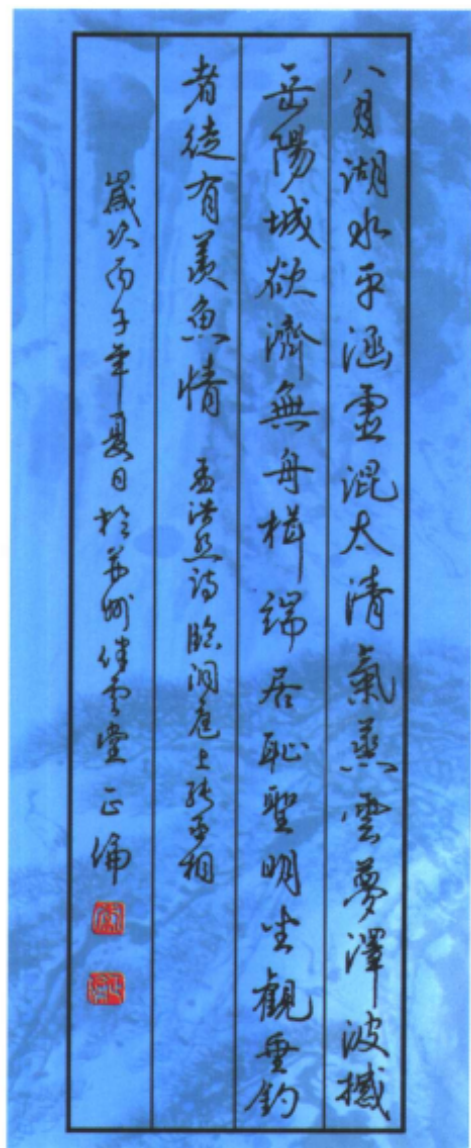 八月湖水平涵虚混太清氣蒸雲夢澤波撼
岳陽城欲濟無舟楫端居恥聖明坐觀垂釣
者徒有羨魚情 孟浩然詩臨洞庭上張丞相
歲次丙子年夏日於苏州雲堂正